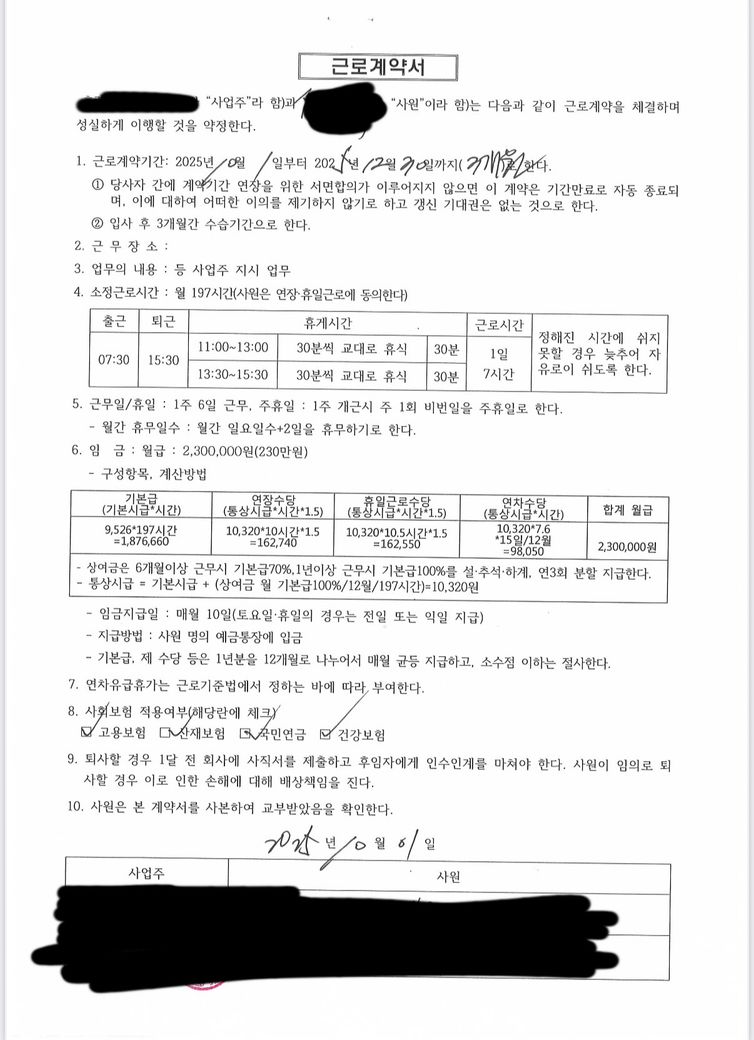 근로계약서
"사업주"라 함)과 "사원"이라 함)는 다음과 같이 근로계약을 체결하며
성실하게 이행할 것을 약정한다.
1. 근로계약기간: 2025년 10월 1일부터 2025년 12월 30일까지(3개월)로 한다.
① 당사자 간에 계약기간 연장을 위한 서면합의가 이루어지지 않으면 이 계약은 기간만료로 자동 종료되
며, 이에 대하여 어떠한 이의를 제기하지 않기로 하고 갱신 기대권은 없는 것으로 한다.
② 입사 후 3개월간 수습기간으로 한다.
2. 근 무 장 소 :
3. 업무의 내용 : 등 사업주 지시 업무
4. 소정근로시간 : 월 197시간(사원은 연장·휴일근로에 동의한다)
출근 퇴근 휴게시간 근로시간 정해진 시간에 쉬지
못할 경우 늦추어 자
유로이 쉬도록 한다.
07:30 15:30 11:00~13:00 30분씩 교대로 휴식 30분 1일
7시간
13:30~15:30 30분씩 교대로 휴식 30분
5. 근무일/휴일 : 1주 6일 근무, 주휴일 : 1주 개근시 주 1회 비번일을 주휴일로 한다.
- 월간 휴무일수 : 월간 일요일수+2일을 휴무하기로 한다.
6. 임 금 : 월급 : 2,300,000원(230만원)
- 구성항목, 계산방법
기본급
(기본시급*시간)
연장수당
(통상시급*시간*1.5)
휴일근로수당
(통상시급*시간*1.5)
연차수당
(통상시급*시간)
합계 월급
9,526*197시간
=1,876,660
10,320*10시간*1.5
=162,740
10,320*10.5시간*1.5
=162,550
10,320*7.6
*15일/12월
=98,050
2,300,000원
- 상여금은 6개월이상 근무시 기본급70%,1년이상 근무시 기본급100%를 설·추석·하계, 연3회 분할 지급한다.
- 통상시급 = 기본시급 + (상여금 월 기본급100%/12월/197시간)=10,320원
- 임금지급일 : 매월 10일(토요일·휴일의 경우는 전일 또는 익일 지급)
- 지급방법 : 사원 명의 예금통장에 입금
- 기본급, 제 수당 등은 1년분을 12개월로 나누어서 매월 균등 지급하고, 소수점 이하는 절사한다.
7. 연차유급휴가는 근로기준법에서 정하는 바에 따라 부여한다.
8. 사회보험 적용여부(해당란에 체크)
☑ 고용보험 ☑ 산재보험 ☑ 국민연금 ☑ 건강보험
9. 퇴사할 경우 1달 전 회사에 사직서를 제출하고 후임자에게 인수인계를 마쳐야 한다. 사원이 임의로 퇴
사할 경우 이로 인한 손해에 대해 배상책임을 진다.
10. 사원은 본 계약서를 사본하여 교부받았음을 확인한다.
2025 년 10 월 01 일
사업주 사원